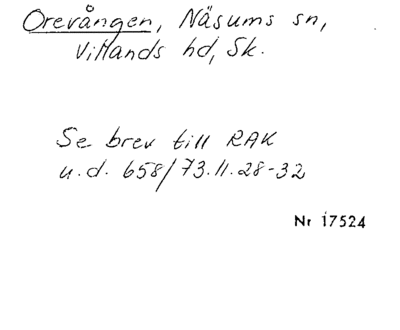 Orevången, Näsums sn,
Villands hd, Sk.
Se brev till RAK
u.d. 658/73.11.28-32
Nr 17524